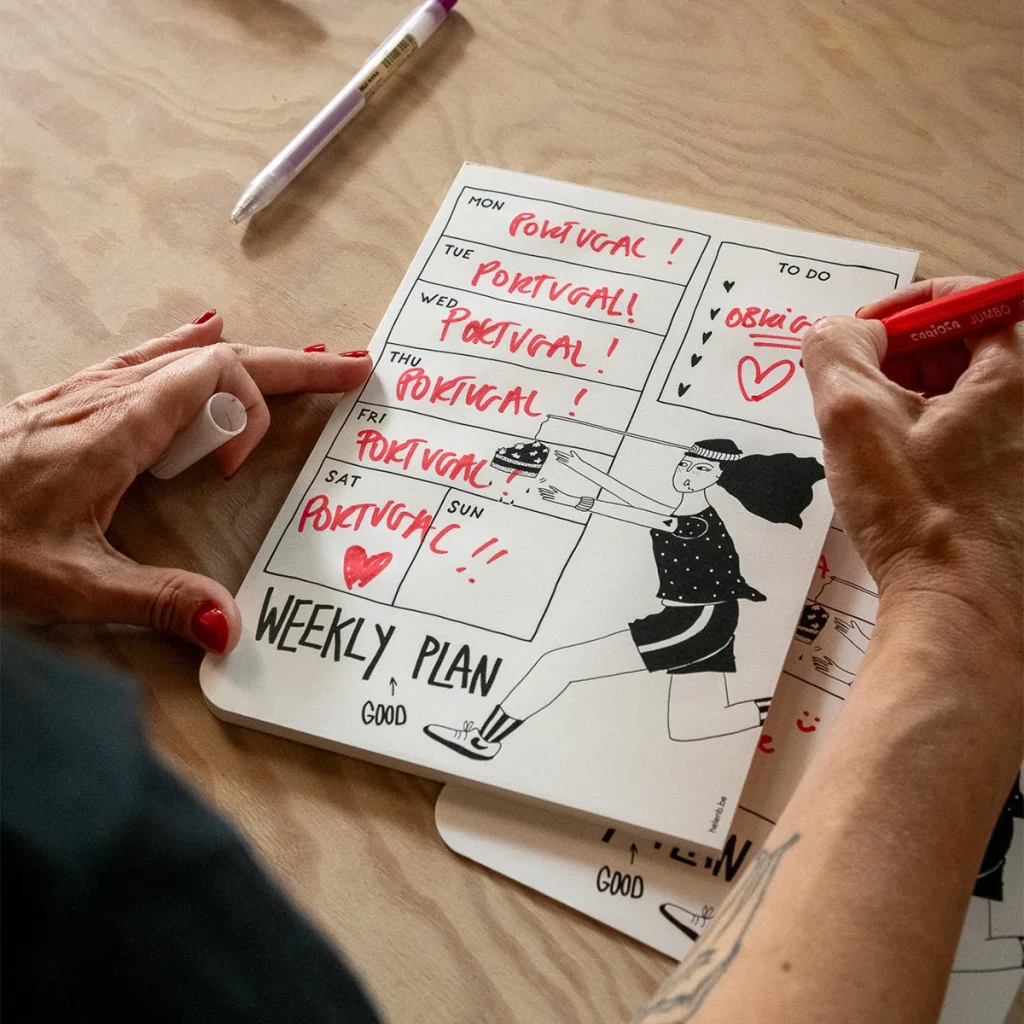 MON
PORTUGAL !
TUE
PORTUGAL!
WED
PORTUGAL !
THU
PORTUGAL !
FRI
PORTUGAL !
SAT
SUN
PORTUGAL !!
TO DO
WEEKLY PLAN
GOOD
helenb.be
CARIOCA JUMBO
PLAN
GOOD